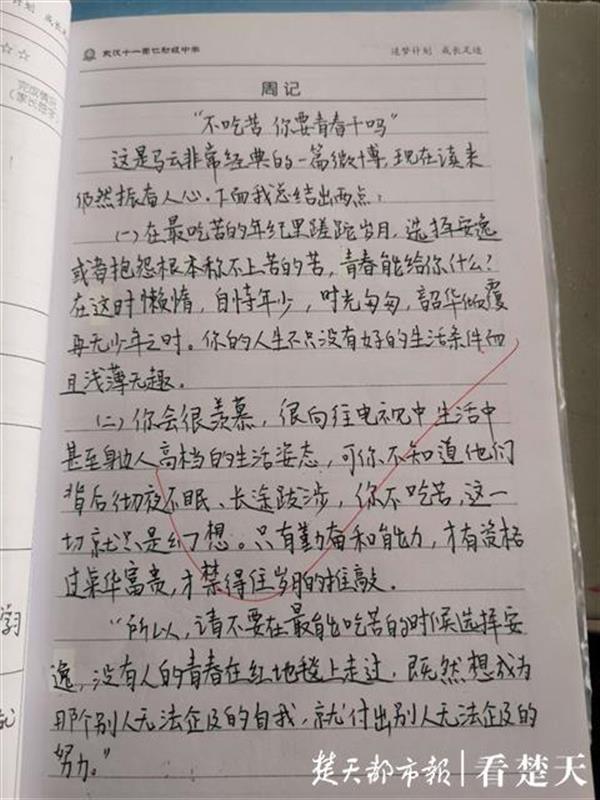 武汉十一滨江初级中学
逐梦计划 成长足迹
☆☆
完成情况
(家长签字)
周记
“不吃苦 你要青春干吗”
这是马云非常经典的一篇微博,现在读来
仍然振奋人心。下面我总结出两点:
(一)在最吃苦的年纪里蹉跎岁月,选择安逸
或者抱怨根本称不上苦的苦,青春能给你什么?
在这时懒惰,自恃年少,时光匆匆,韶华倾覆
再无少年之时。你的人生不只没有好的生活条件而
且浅薄无趣。
(二)你会很羡慕,很向往电视中生活中
甚至身边人高档的生活姿态,可你不知道他们
背后彻夜不眠、长途跋涉,你不吃苦,这一
切就只是幻想。只有勤奋和能力,才有资格
过荣华富贵,才禁得住岁月的推敲。
“所以,请不要在最能吃苦的时候选择安
逸,没有人的青春在红地毯上走过,既然想成为
那个别人无法企及的自我,就付出别人无法企及的
努力。”
学习
楚天都市报 看楚天